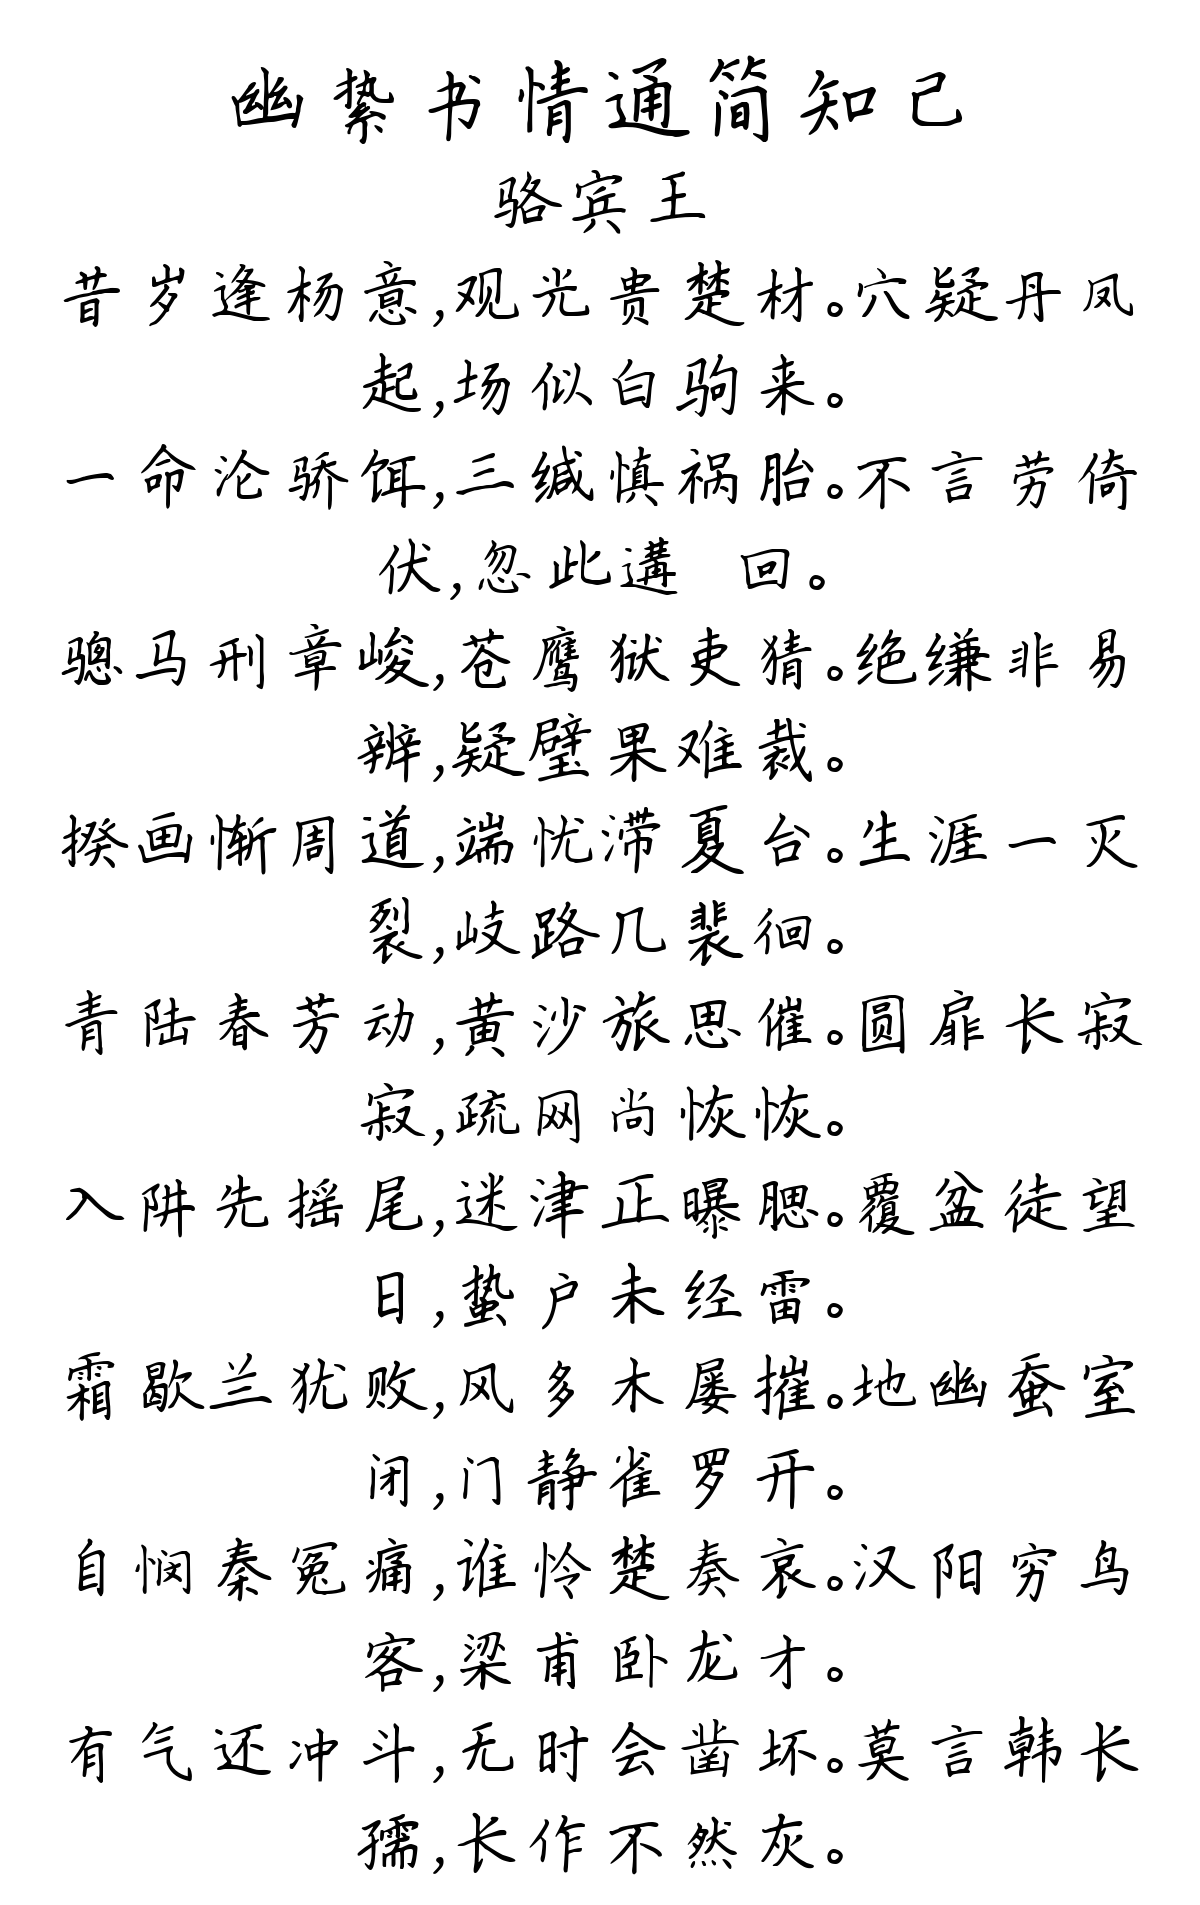 幽絷书情通简知己
骆宾王
昔岁逢杨意,观光贵楚材。穴疑丹凤
起,场似白驹来。
一命沦骄饵,三缄慎祸胎。不言劳倚
伏,忽此遘 回。
骢马刑章峻,苍鹰狱吏猜。绝缣非易
辨,疑璧果难裁。
揆画惭周道,端忧滞夏台。生涯一灭
裂,岐路几裴徊。
青陆春芳动,黄沙旅思催。圆扉长寂
寂,疏网尚恢恢。
入阱先摇尾,迷津正曝腮。覆盆徒望
日,蛰户未经雷。
霜歇兰犹败,风多木屡摧。地幽蚕室
闭,门静雀罗开。
自悯秦冤痛,谁怜楚奏哀。汉阳穷鸟
客,梁甫卧龙才。
有气还冲斗,无时会凿坏。莫言韩长
孺,长作不然灰。